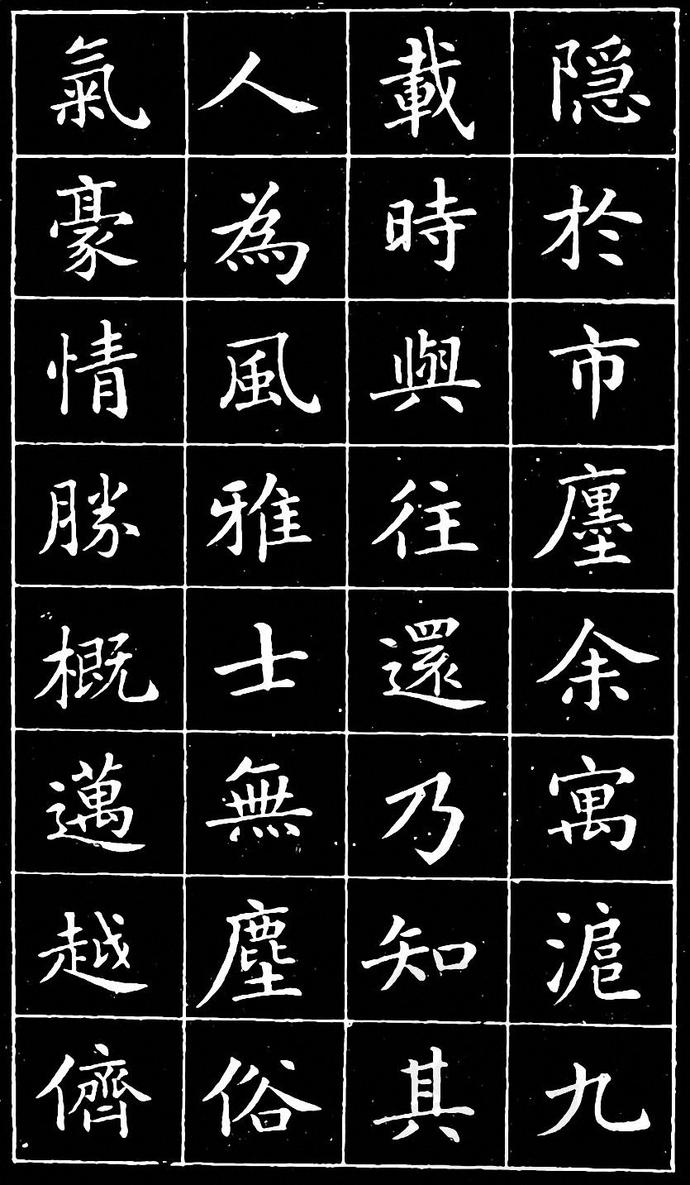 隱於市廛余寓滬九
載時與往還乃知其
人為風雅士無塵俗
氣豪情勝概邁越儕